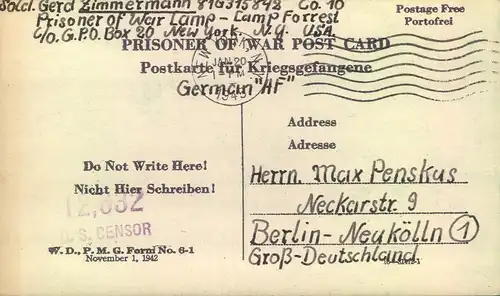 Sold. Gerd Zimmermann 81G315842 Co. 10
Prisoner of War Camp - Camp Forrest
C/O. G.P.O. Box 20 New York. N.Y. USA.
Postage Free
Portofrei
PRISONER OF WAR POST CARD
Postkarte für Kriegsgefangene
German "AF"
JAN 20
1945
Address
Adresse
Do Not Write Here!
Nicht Hier Schreiben!
12,632
U. S. CENSOR
W. D., P. M. G. Form No. 6-1
November 1, 1942
Herrn. Max Penskus
Neckarstr. 9
Berlin-Neukölln 1
Groß-Deutschland